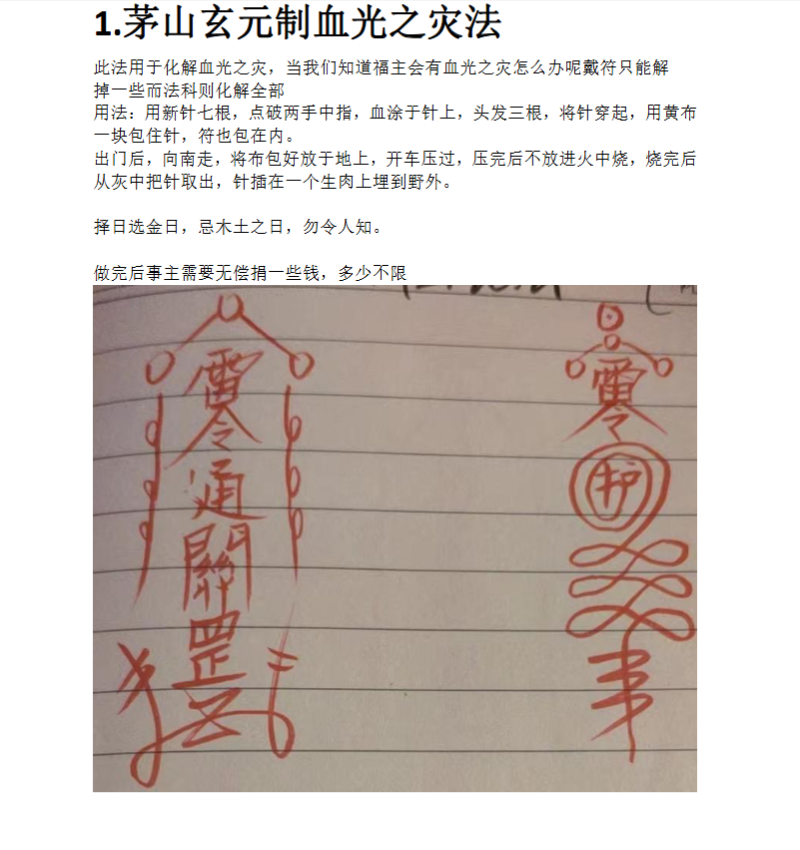 1.茅山玄元制血光之灾法
此法用于化解血光之灾，当我们知道福主会有血光之灾怎么办呢戴符只能解
掉一些而法科则化解全部
用法：用新针七根，点破两手中指，血涂于针上，头发三根，将针穿起，用黄布
一块包住针，符也包在内。
出门后，向南走，将布包好放于地上，开车压过，压完后不放进火中烧，烧完后
从灰中把针取出，针插在一个生肉上埋到野外。
择日选金日，忌木土之日，勿令人知。
做完后事主需要无偿捐一些钱，多少不限
通
關
罡
护